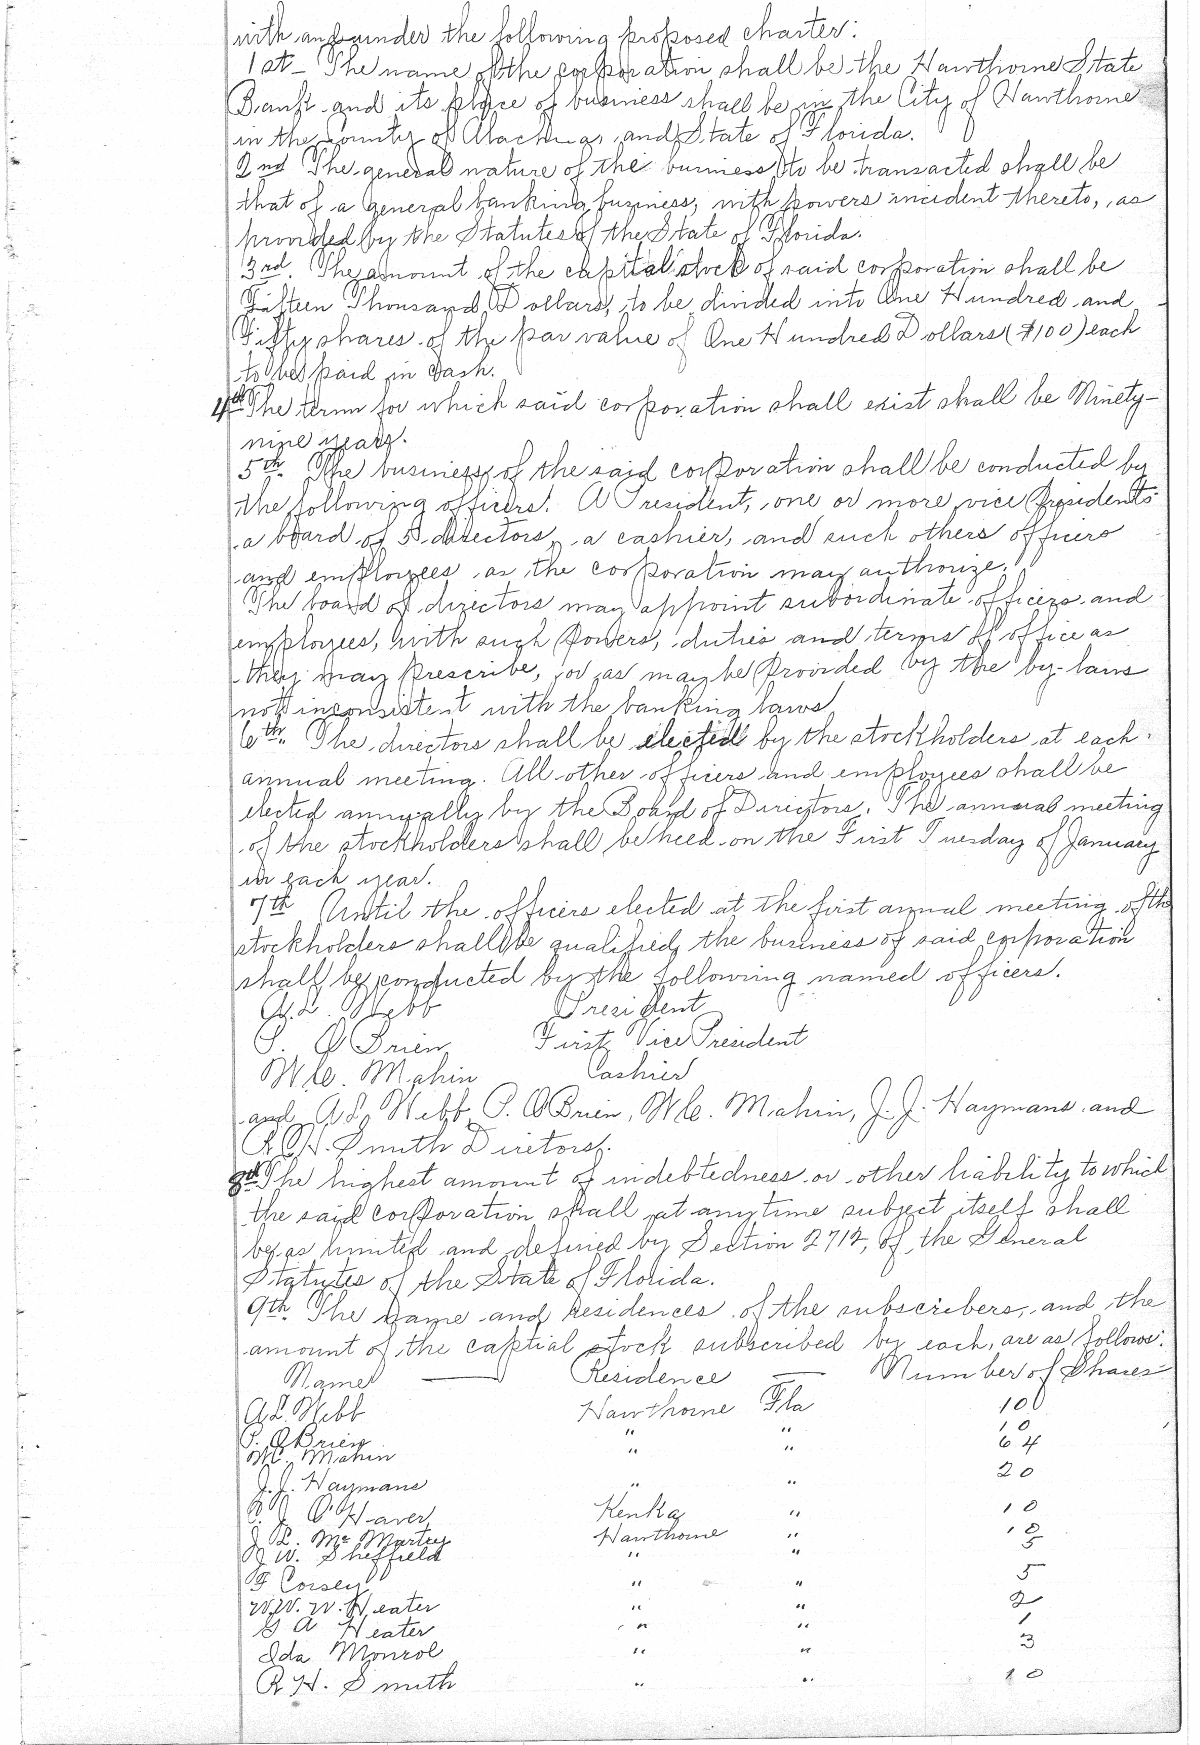 with and under the following proposed charter:
1st- The name of the corporation shall be the Hawthorne State
Bank and its place of business shall be in the City of Hawthorne
in the County of Alachua, and State of Florida.
2nd The general nature of the business to be transacted shall be
that of a general banking business, with powers incident thereto, as
provided by the Statutes of the State of Florida.
3rd. The amount of the capital stock of said corporation shall be
Fifteen Thousand Dollars, to be divided into One Hundred and
Fifty shares of the par value of One Hundred Dollars ($100) each
to be paid in cash.
4th The term for which said corporation shall exist shall be Ninety-
nine years.
5th. The business of the said corporation shall be conducted by
the following officers. A President, one or more vice Presidents
a board of 5 directors, a cashier, and such others officers
and employees as the corporation may authorize.
The board of directors may appoint subordinate officers and
employees, with such powers, duties and terms of office as
they may prescribe, or as may be provided by the by-laws
not inconsistent with the banking laws.
6th. The directors shall be elected by the stockholders at each
annual meeting. All other officers and employees shall be
elected annually by the Board of Directors. The annual meeting
of the stockholders shall be held on the First Tuesday of January
in each year.
7th Until the officers elected at the first annual meeting of the
stockholders shall be qualified, the business of said corporation
shall be conducted by the following named officers.
A.L. Webb President
P. O'Brien First Vice President
W.C. Mahin Cashier
and A.L. Webb, P. O'Brien, W.C. Mahin, J.J. Haymans and
R.H. Smith Diretors.
8th The highest amount of indebtedness or other liability to which
the said corporation shall at anytime subject itself shall
be as limited and defined by Section 2712, of the General
Statutes of the State of Florida.
9th. The name and residences of the subscribers, and the
amount of the captial stock subscribed by each, are as follows:
Name Residence Number of Shares
A.L. Webb Hawthorne Fla 100
P. O'Brien " " 10
W.C. Mahin " " 64
J.J. Haymans " " 20
J. O'Haver Kenka " 10
Mc Martey Hawthorne " 10
W. Sheffield " " 5
F Corsey " " 5
W.W. Heater " " 2
G A Heater " " 1
Ida Monrol " " 3
R H. Smith " " 10